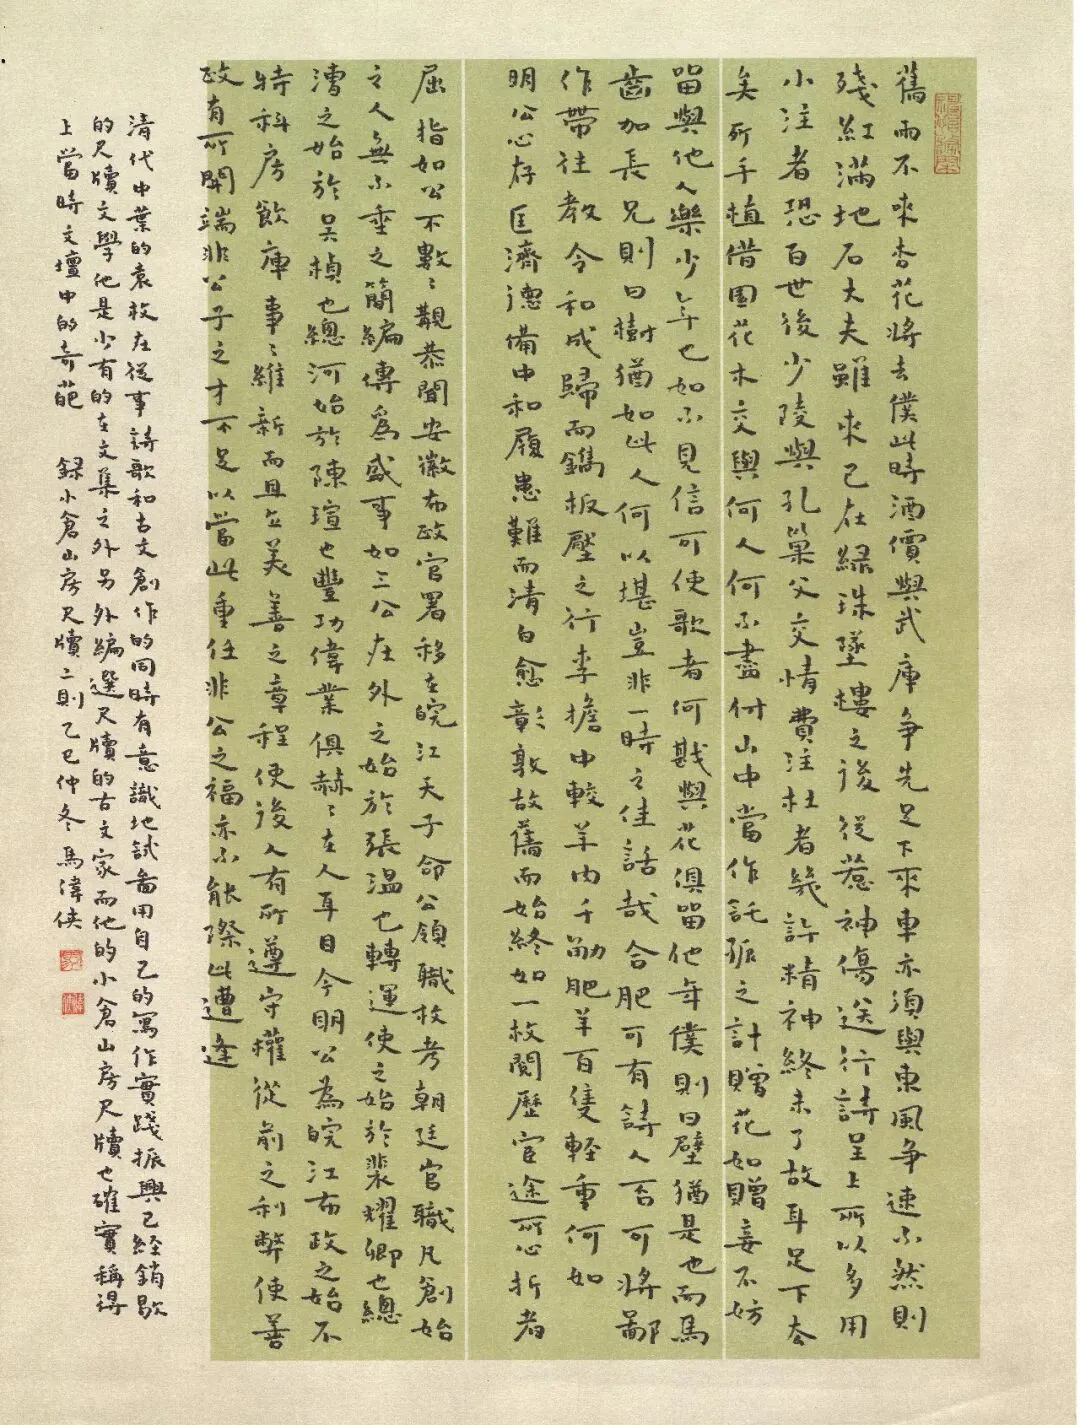 舊雨不來杏花將去僕此時酒價與武庫爭先足下來車亦須與東風爭速不然則
殘紅滿地石大夫雖來已在綠珠墜樓之後從惹神傷送行詩呈上所以多用
小注者恐百世後少陵與孔巢父交情費注杜者幾許精神終未了故耳足下去
矣所手植借園花木交與何人何不盡付山中當作託孤之計贈花如贈妾不妨
留與他人樂少年也如不見信可使歌者何戡與花俱留他年僕則曰璧猶是也而馬
齒加長兄則曰樹猶如此人何以堪豈非一時之佳話哉合肥可有詩人否可將鄙
作帶往教令和成歸而鐫板壓之行李擔中較羊肉千觔肥羊百隻輕重何如
明公心存匡濟德備中和履患難而清白愈彰敦故舊而始終如一枚閱歷宦途所心折者
屈指如公不數數覯恭聞安徽布政官署移在皖江天子命公領職枚考朝廷官職凡創始
之人無不重之簡編傳為盛事如三公在外之始於張溫也轉運使之始於裴耀卿也總
漕之始於吳楨也總河始於陳瑄也豐功偉業俱赫赫在人耳目今明公為皖江布政之始不
特科房飲庫事事維新而且立美善之章程使後人有所遵守權從前之利弊使善
政有所開端非公子之才不足以當此重任非公之福亦不能際此遭逢
清代中業的袁枚在從事詩歌和古文創作的同時有意識地試圖用自己的寫作實踐振興已經銷歇
的尺牘文學他是少有的在文集之外另外編選尺牘的古文家而他的小倉山房尺牘也確實稱得
上當時文壇中的奇葩 錄小倉山房尺牘二則乙巳仲冬馬偉俠